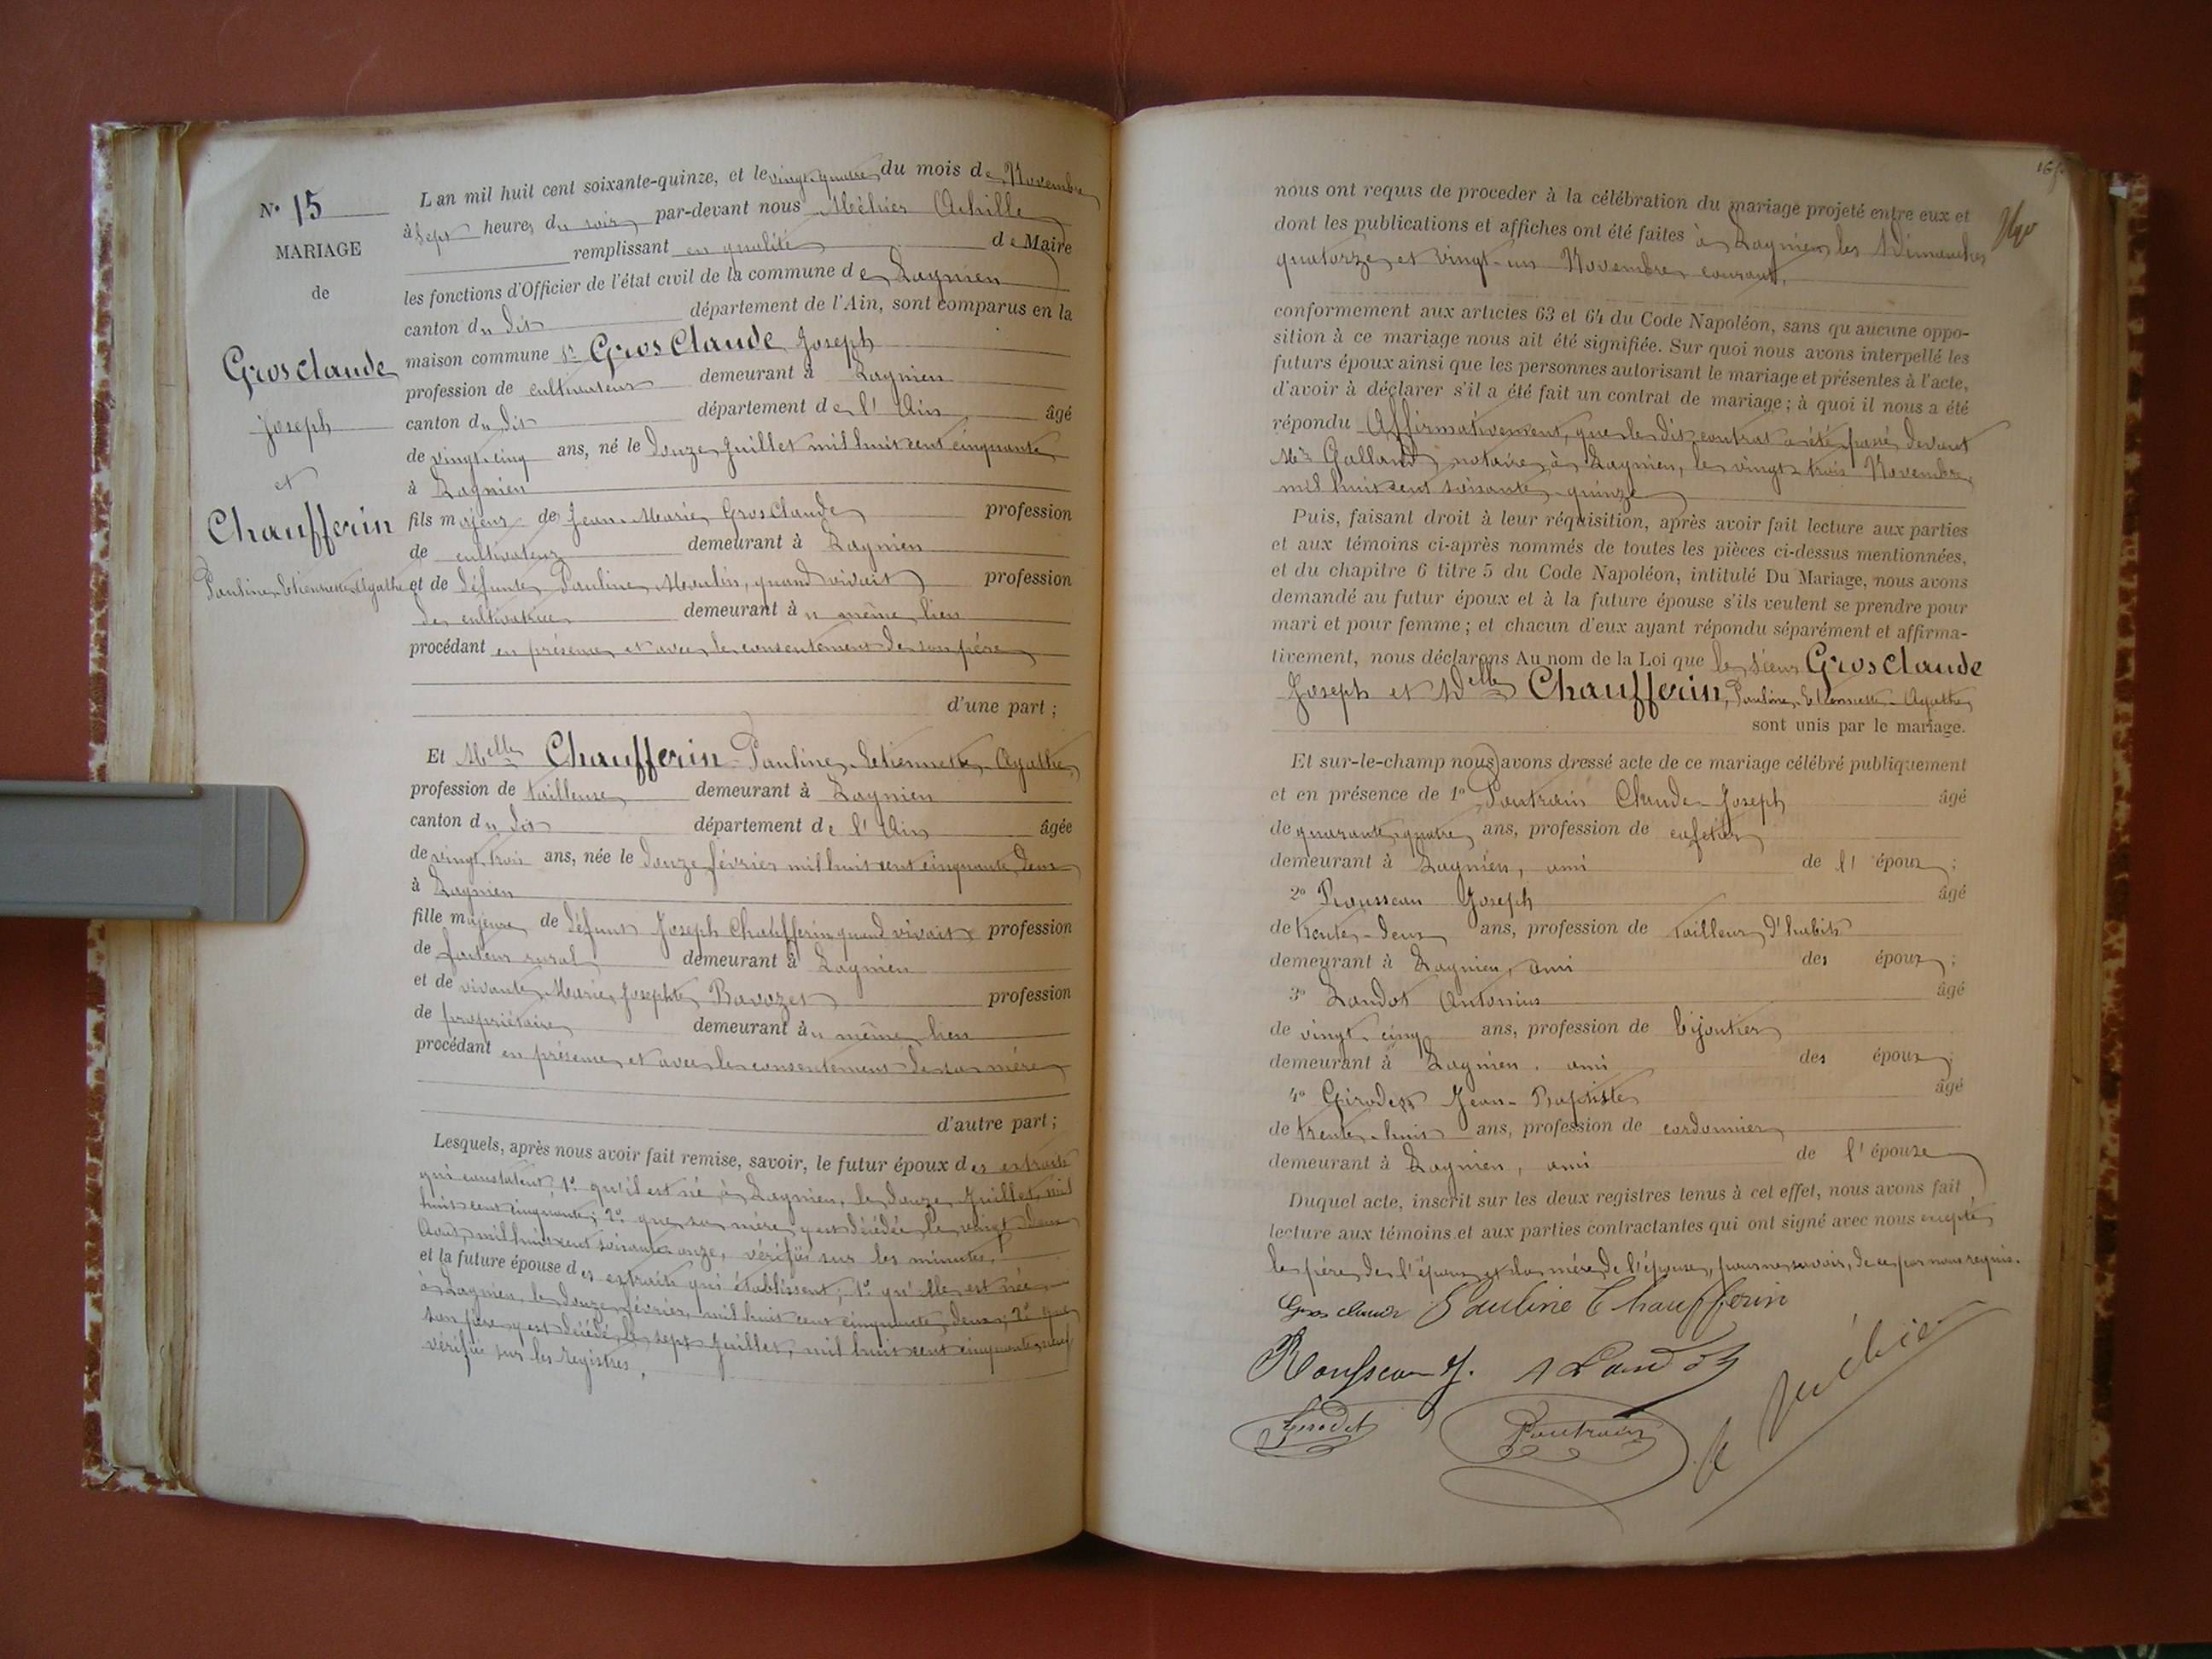 N° 15
MARIAGE
de
Gros Claude
Joseph
et
Chaufferin
Pauline Etiennette Agathe
L'an mil huit cent soixante-quinze, et le vingt-quatre du mois de Novembre
à sept heures du soir par-devant nous Méhier Achille
remplissant en qualité de Maire
les fonctions d'Officier de l'état civil de la commune de Lagnieu
canton du dit département de l'Ain, sont comparus en la
maison commune Sr Gros Claude Joseph
profession de cultivateur demeurant à Lagnieu
canton du dit département de l'Ain âgé
de vingt-cinq ans, né le douze Juillet mil huit cent cinquante
à Lagnieu
fils majeur de Jean-Marie Gros Claude profession
de cultivateur demeurant à Lagnieu
et de défunte Pauline Moulin, quand vivait profession
de cultivatrice demeurant à u même lieu
procédant en présence et avec le consentement de son père
d'une part ;
Et Melle Chaufferin Pauline Etiennette Agathe
profession de tailleuse demeurant à Lagnieu
canton du dit département de l'Ain âgée
de vingt-trois ans, née le douze février mil huit cent cinquante deux
à Lagnieu
fille majeure de défunt Joseph Chaufferin quand vivait profession
de facteur rural demeurant à Lagnieu
et de vivante Marie Josephte Ravozet profession
de propriétaire demeurant à u même lieu
procédant en présence et avec le consentement de sa mère
d'autre part ;
Lesquels, après nous avoir fait remise, savoir, le futur époux des extraits
qui constatent, 1° qu'il est né à Lagnieu, le douze Juillet mil
huit cent cinquante ; 2° que sa mère y est décédée le vingt deux
Août mil huit cent soixante onze, vérifiés sur les minutes,
et la future épouse des extraits qui établissent ; 1° qu'elle est née
à Lagnieu le douze février, mil huit cent cinquante deux ; 2° que
son père y est décédé, le sept Juillet, mil huit cent cinquante neuf
vérifiés sur les registres.
nous ont requis de procéder à la célébration du mariage projeté entre eux et
dont les publications et affiches ont été faites à Lagnieu les Dimanches
quatorze et vingt-un Novembre courant,
conformément aux articles 63 et 64 du Code Napoléon, sans qu'aucune oppo-
sition à ce mariage nous ait été signifiée. Sur quoi nous avons interpellé les
futurs époux ainsi que les personnes autorisant le mariage et présentes à l'acte,
d'avoir à déclarer s'il a été fait un contrat de mariage ; à quoi il nous a été
répondu Affirmativement, que le dit contrat a été passé devant
Me Galland notaire à Lagnieu, le vingt-trois Novembre,
mil huit cent soixante-quinze
Puis, faisant droit à leur réquisition, après avoir fait lecture aux parties
et aux témoins ci-après nommés de toutes les pièces ci-dessus mentionnées,
et du chapitre 6 titre 5 du Code Napoléon, intitulé Du Mariage, nous avons
demandé au futur époux et à la future épouse s'ils veulent se prendre pour
mari et pour femme ; et chacun d'eux ayant répondu séparément et affirma-
tivement, nous déclarons Au nom de la Loi que le sieur Gros Claude
Joseph et Delle Chaufferin, Pauline-Etiennette-Agathe
sont unis par le mariage.
Et sur-le-champ nous avons dressé acte de ce mariage célébré publiquement
et en présence de 1° Poutrain Claude-Joseph âgé
de quarante-quatre ans, profession de cafetier
demeurant à Lagnieu, ami de l'époux ;
2° Rousseau Joseph âgé
de trente-deux ans, profession de tailleur d'habits
demeurant à Lagnieu, ami des époux ;
3° Landot Antonius âgé
de vingt-cinq ans, profession de bijoutier
demeurant à Lagnieu, ami des époux ;
4° Girodet Jean-Baptiste âgé
de trente-huit ans, profession de cordonnier
demeurant à Lagnieu, ami de l'épouse
Duquel acte, inscrit sur les deux registres tenus à cet effet, nous avons fait
lecture aux témoins et aux parties contractantes qui ont signé avec nous excepté
le père de l'époux et la mère de l'épouse, pour ne savoir, de ce par nous requis.
Gros claude Pauline Chaufferin
Rousseau J. A Landot
Girodet Poutrain
A Méhier